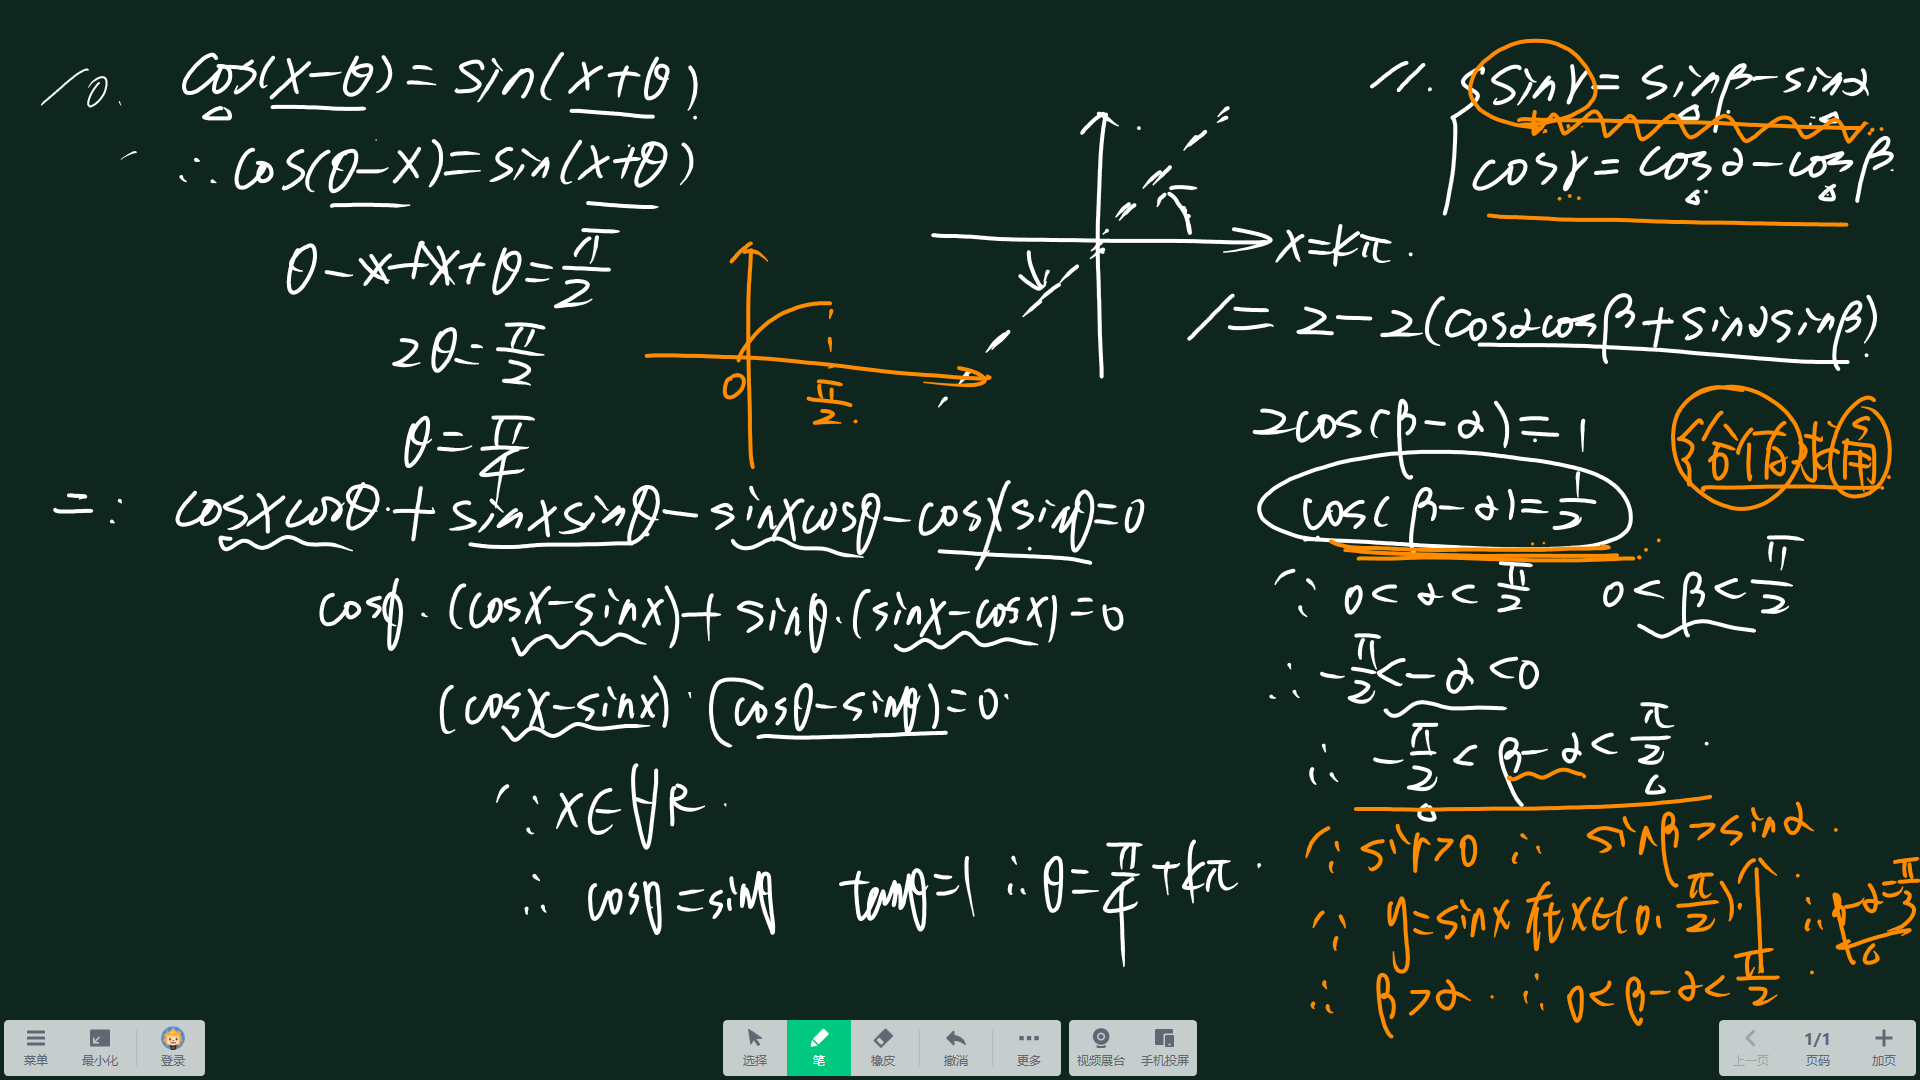 10. cos(x-θ)=sin(x+θ)
∴cos(θ-x)=sin(x+θ)
θ-x+x+θ=π/2
2θ=π/2
θ=π/4
二: cosxcosθ+sinxsinθ-sinxcosθ-cosxsinθ=0
cosθ·(cosx-sinx)+sinθ·(sinx-cosx)=0
(cosx-sinx)·(cosθ-sinθ)=0
∵x∈∀R
∴cosθ=sinθ tanθ=1 ∴θ=π/4+kπ
0 π/2
x=kπ
11. sinγ=sinβ-sinα
cosγ=cosα-cosβ
1=2-2(cosαcosβ+sinαsinβ)
2cos(β-α)=1
cos(β-α)=1/2
给值求角
∵0<α<π/2 0<β<π/2
∴-π/2<-α<0
∴-π/2<β-α<π/2
∵sinγ>0 ∴sinβ>sinα
∵y=sinx在x∈(0,π/2)↑ ∴β-α=π/3
∴β>α ∴0<β-α<π/2
菜单 最小化 登录 选择 笔 橡皮 撤消 更多 视频展台 手机投屏 上一页 1/1 页码 加页